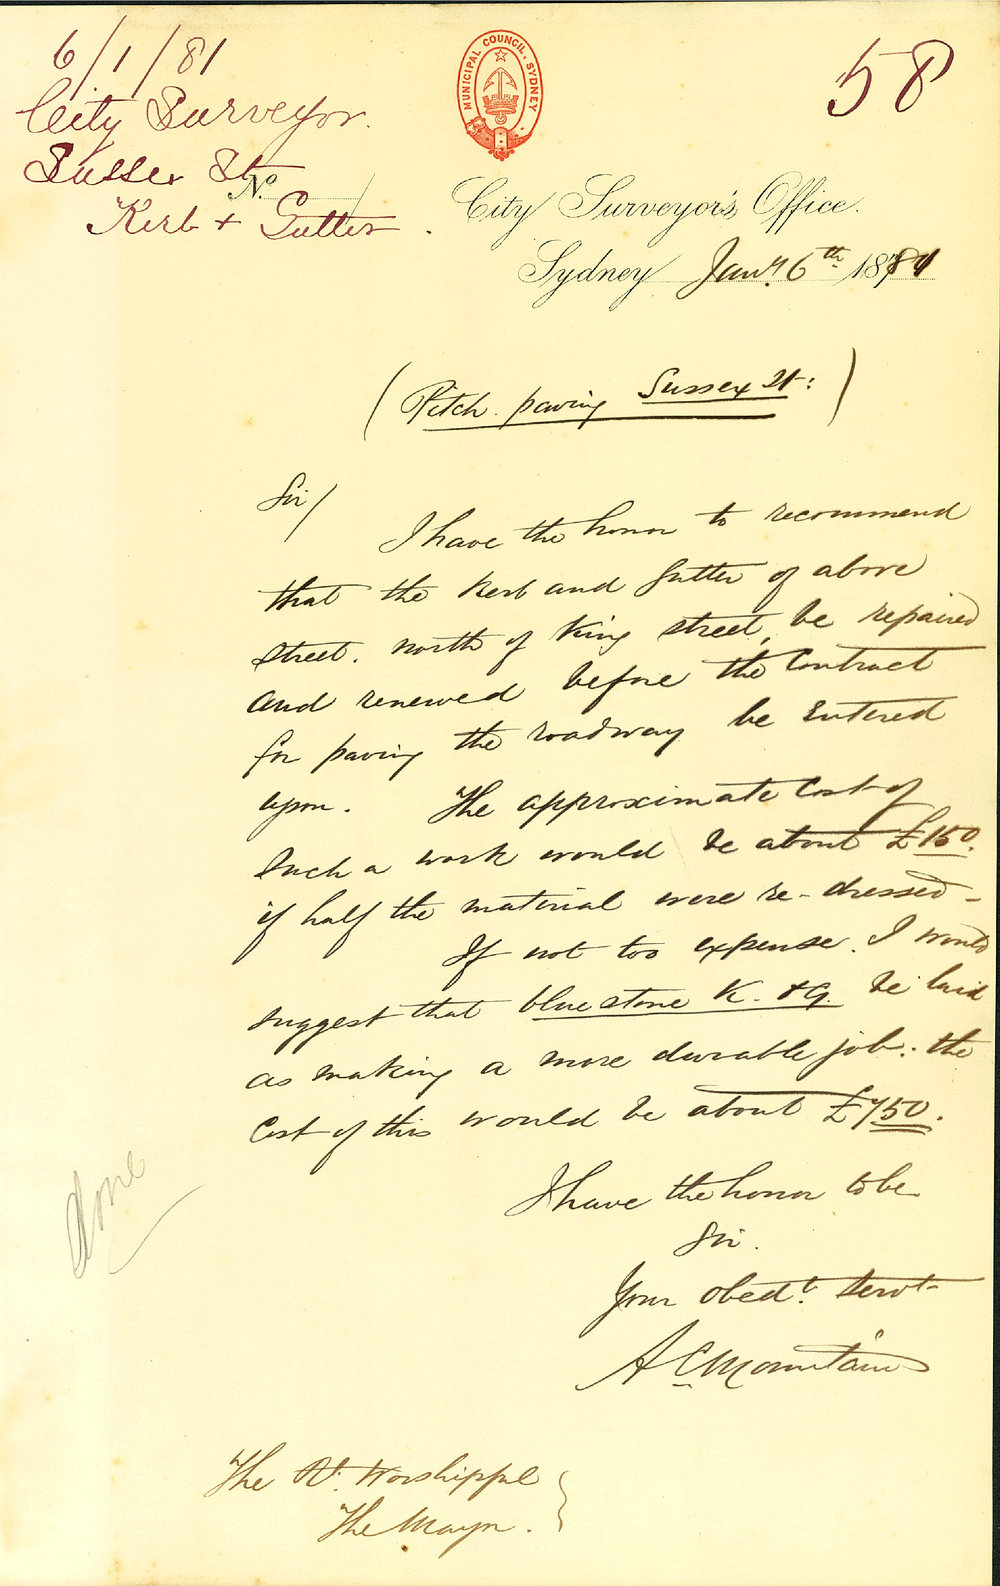 6/1/81
City Surveyor.
Sussex St
Kerb & Gutter.
No.
MUNICIPAL COUNCIL, SYDNEY
58
City Surveyor's Office.
Sydney Jany. 6th 1881
(Pitch paving Sussex St:)
Sir/
I have the honor to recommend
that the Kerb and Gutter of above
street. north of King street, be repaired
and renewed before the Contract
for paving the roadway be Entered
upon. The approximate Cost of
Such a work would be about £150.
if half the material were re-dressed -
If not too expense. I would
suggest that blue stone K. & G. be laid
as making a more durable job: the
Cost of this would be about £750.
I have the honor to be
Sir.
Your obedt. Servt
A C Mountain
The Rt. Worshipful
The Mayor.
done